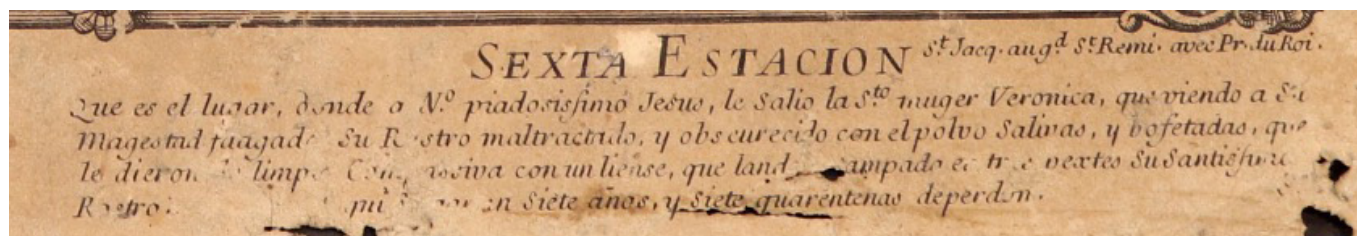 SEXTA ESTACION St. Jacq. augd. St. Remi. avec Pr. du Roi.
Que es el lugar, donde a N.º piadosissimo Jesus, le salio la S.to muger Veronica, que viendo a Su
Magestad Su Rostro maltractado, y obscurecido con el polvo Salivas, y bofetadas, que
le dieron con un liense, que Su Santissimo
Rostro. Siete años, y Siete quarentenas deperdon.